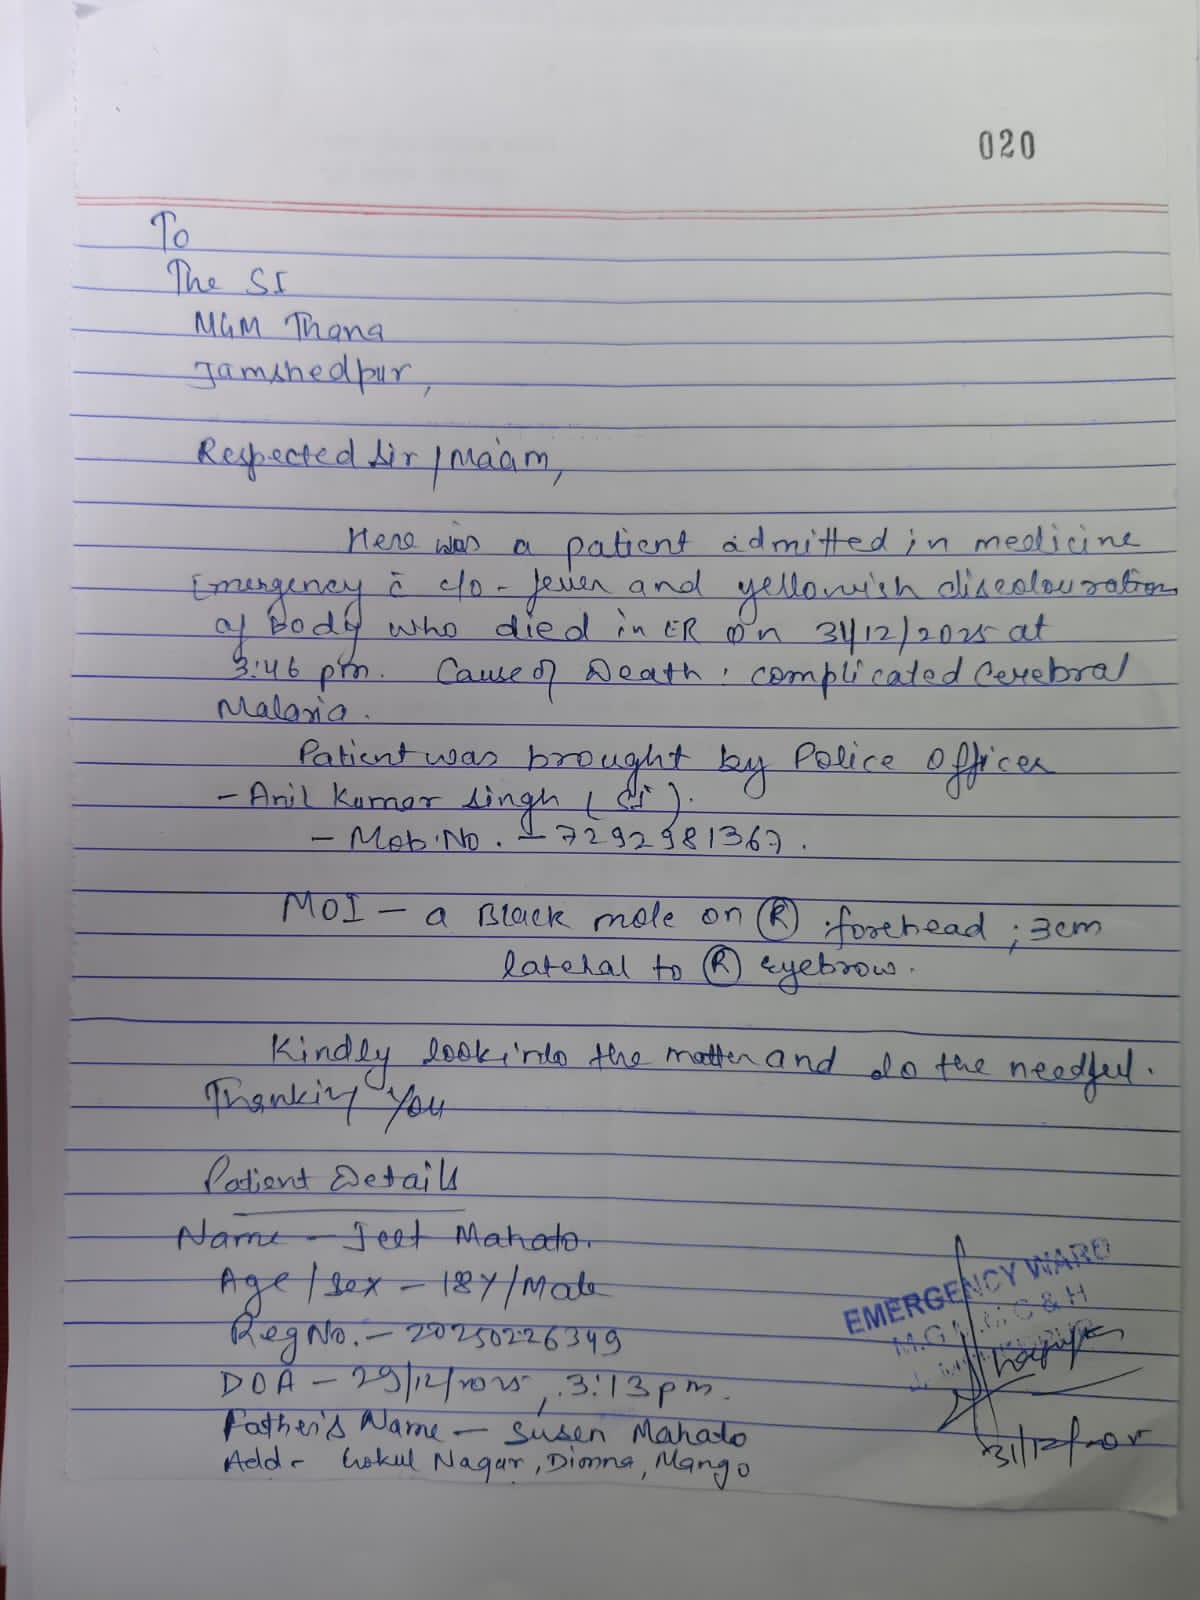 020
To
The SI
MGM Thana
Jamshedpur,
Respected Sir / Ma'am,
Here was a patient admitted in medicine
Emergency c̄ c/o - fever and yellowish discolouration
of Body who died in ER on 31/12/2025 at
3:46 pm. Cause of Death : complicated Cerebral
Malaria.
Patient was brought by Police Officer
- Anil Kumar Singh ( ).
- Mob. No. - 7292981367.
MOI - a Black mole on (R) forehead ; 3cm
lateral to (R) eyebrow.
Kindly look into the matter and do the needful.
Thanking You
Patient Details
Name - Jeet Mahato.
Age / Sex - 18Y / Male
Reg No. - 20250226349
DOA - 29/12/2025, 3:13 pm.
Father's Name - Susen Mahato
Add - Gokul Nagar, Dimna, Mango
EMERGENCY WARD
M.G.M.M.C & H
31/12/2025